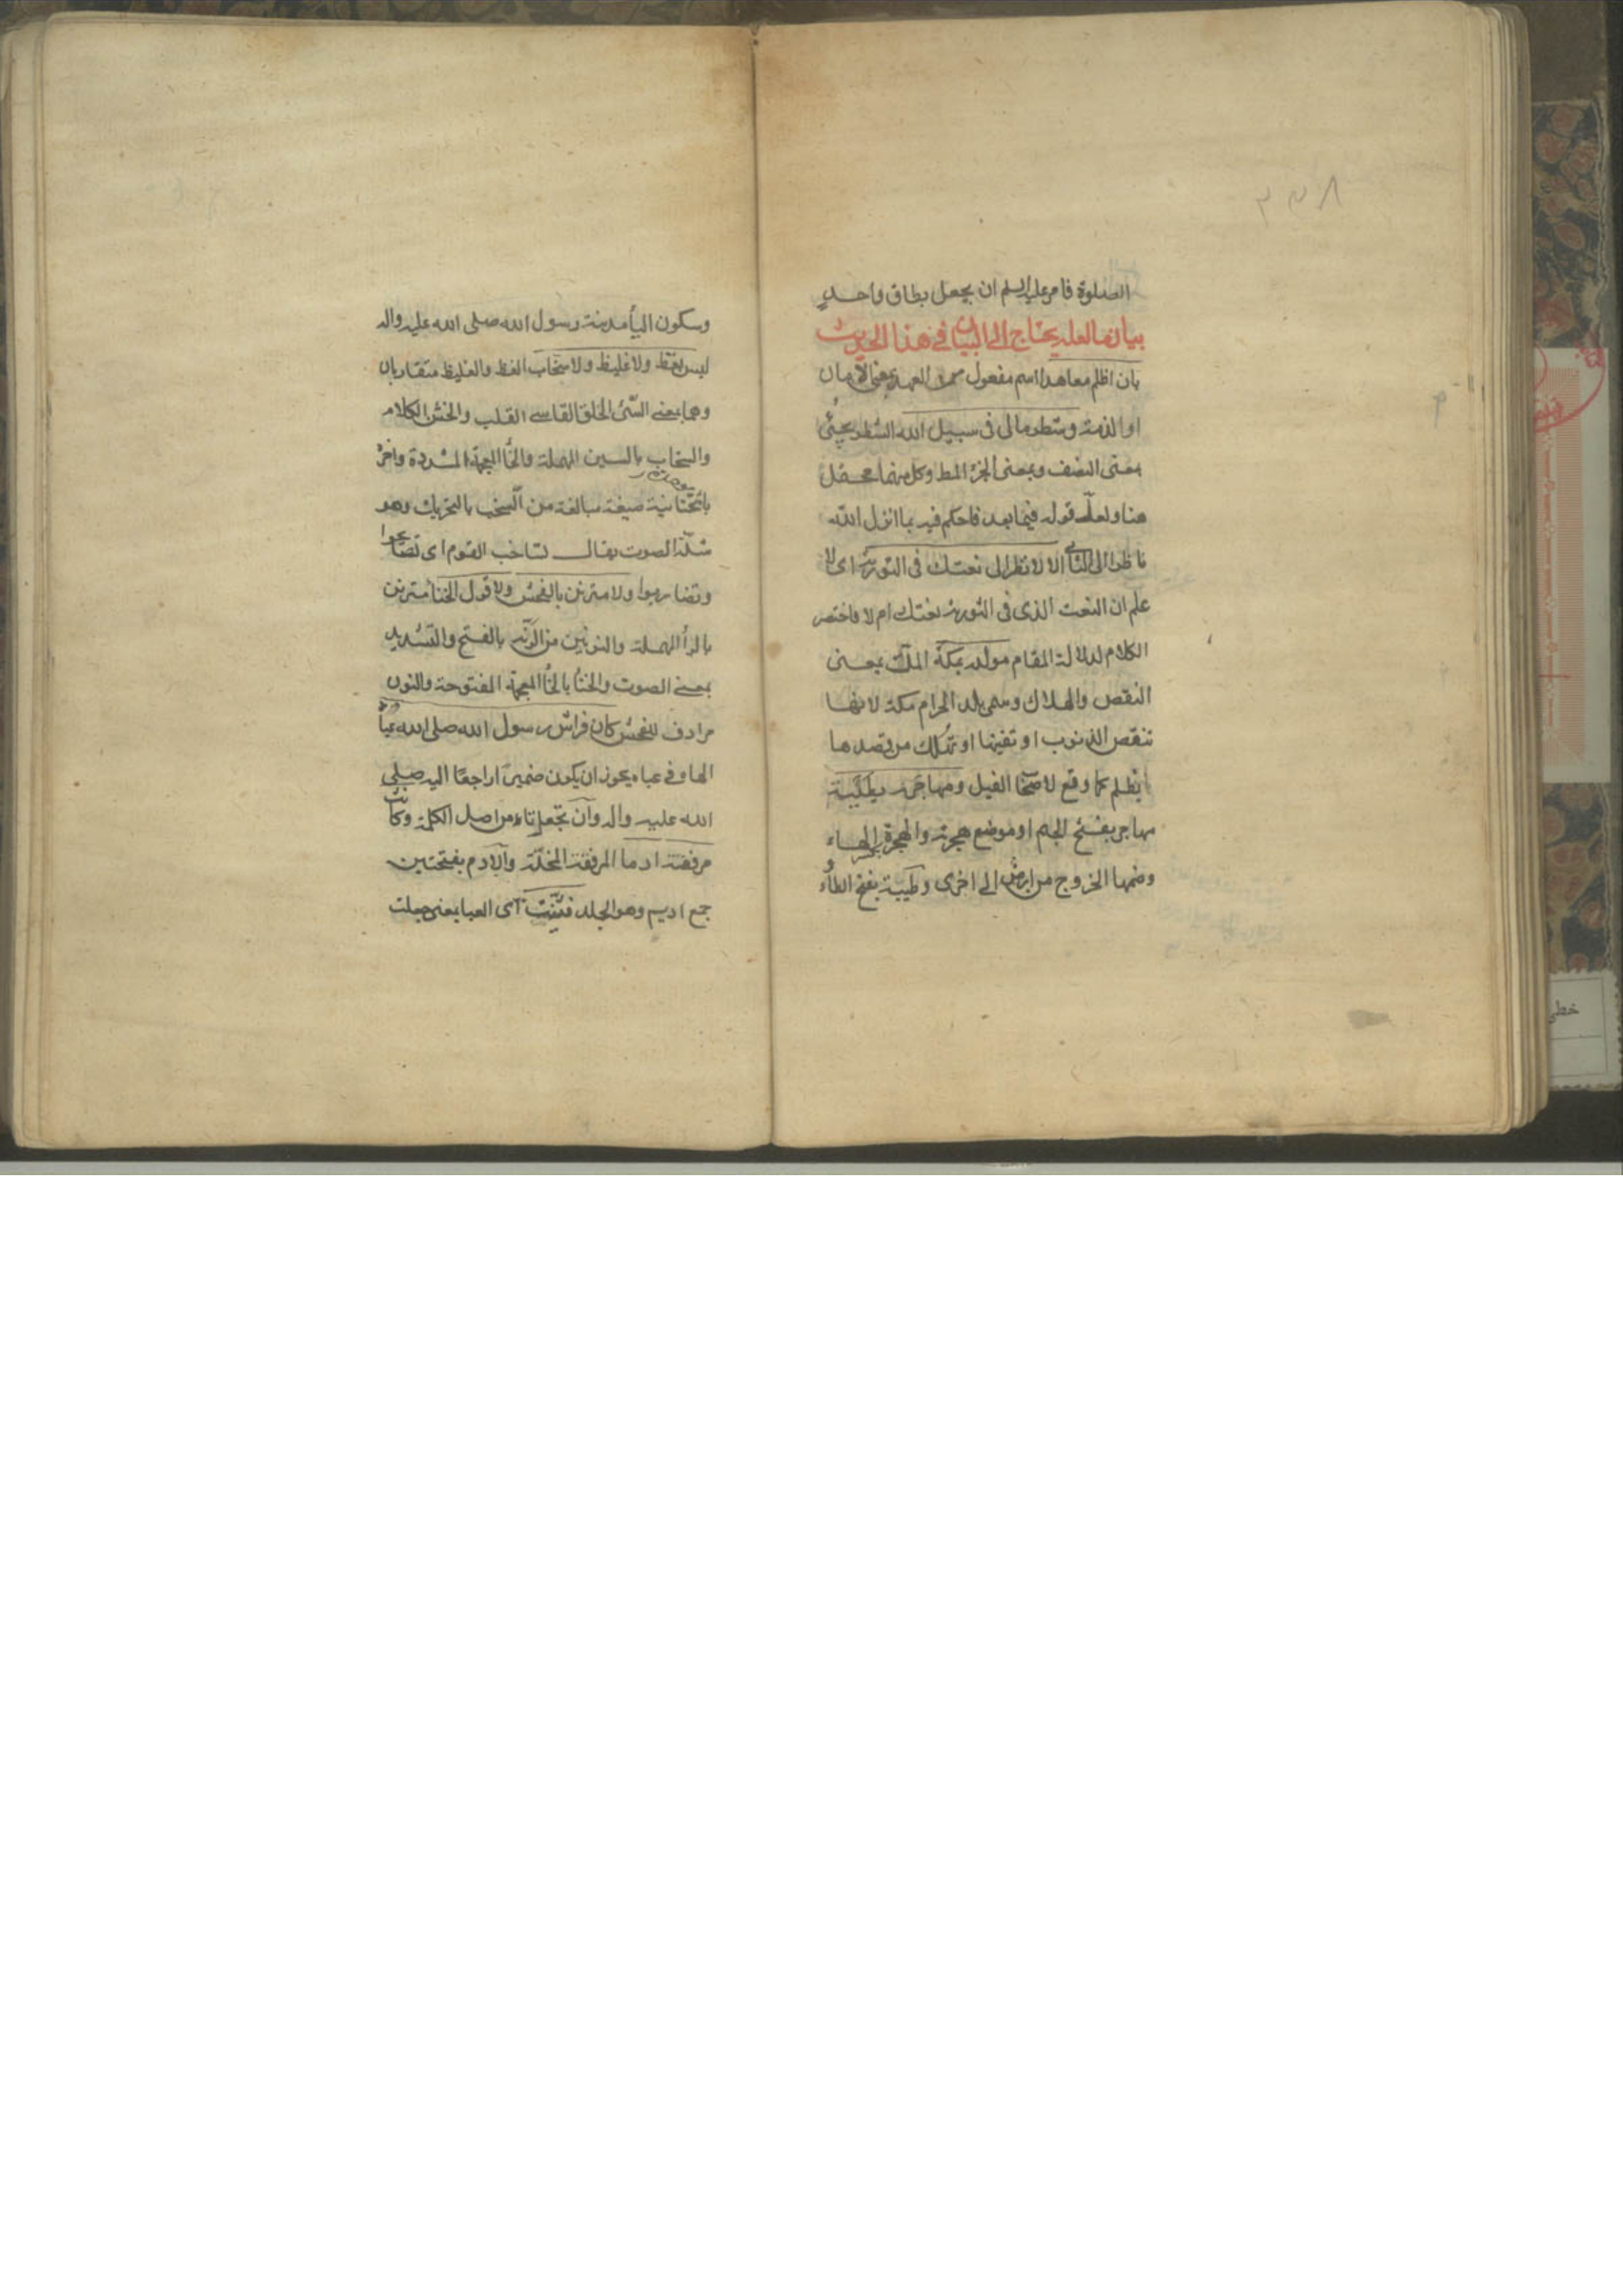 ۳۳۸
الصلوة فامر عليه السلم ان يجعل بطاق واحد
بيان ما لعله يحتاج الى البيان في هذا الحديث
بان اظلم معاهدا اسم مفعول من العهد بمعنى الامان
او الذمة وشطر مالى فى سبيل الله الشطر يجئ
بمعنى النصف وبمعنى الجزء المط وكل منهما محتمل
هنا ولعل قوله فيما بعد فاحكم فيه بما انزل الله
ناظر الى الثانى الا لانظر الى نعتك فى التورية اى لا
علم ان النعت الذى فى التورية نعتك ام لا فاختصر
الكلام لدلالة المقام مولده بمكة المك بمعنى
النقص والهلاك وسمى بلد الحرام مكة لانها
تنقص الذنوب او تفنيها او تهلك من قصدها
بظلم كما وقع لاصحا الفيل ومهاجره بطيبة
مهاجر بفتح الجيم او موضع هجرته والهجرة بكسر الهاء
وضمها الخروج من ارض الى اخرى وطيبة بفتح الطاء
وسكون اليأ مدينة رسول الله صلى الله عليه واله
ليس بفظ ولا غليظ ولا سخاب الفظ والغليظ متقاربان
وهما بمعنى السئ الخلق القاسى القلب والخشن الكلام
والسخاب بالسين المهملة والخأ المعجمة المشددة واخره
بالتحتانية صيغة مبالغة من السخب بالتحريك وهو
شدة الصوت يقال تساخب القوم اى تصايحوا
وتضاربوا ولا مترنن بالفحش ولا قول الخنأ مترنن
بالرأ المهملة والنونين من الرنة بالفتح والتشديد
بمعنى الصوت والخنأ بالخأ المعجمة المفتوحة والنون
مرادف للفحش كان فراش رسول الله صلى الله عبأ
الها وفى عباه يجوز ان يكون ضميرا راجعا اليه صلى
الله عليه واله وان تجعل تاء من اصل الكلمة وكانت
مرفقته ادما المرفقة المخدة والادم بفتحتين
جمع اديم وهو الجلد فثنيت اى العبا بمعنى جعلت